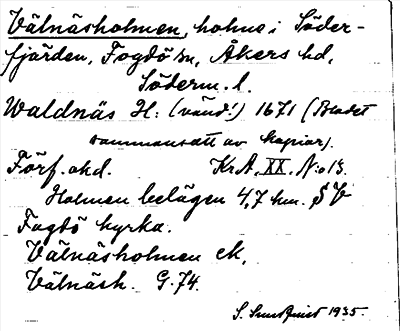 Välnäsholmen, holme i Söder-
fjärden, Fogdö sn, Åkers hd,
Söderm. l.
Waldnäs H: (vänd!) 1671 (Bladet
sammansatt av kopior).
Förf. okd. KrA. XX. N:o 13.
Holmen belägen 4,7 km. SV
Fogdö kyrka.
Välnäsholmen ek,
Välnäsh. G. 74.
S. Sundquist 1935.